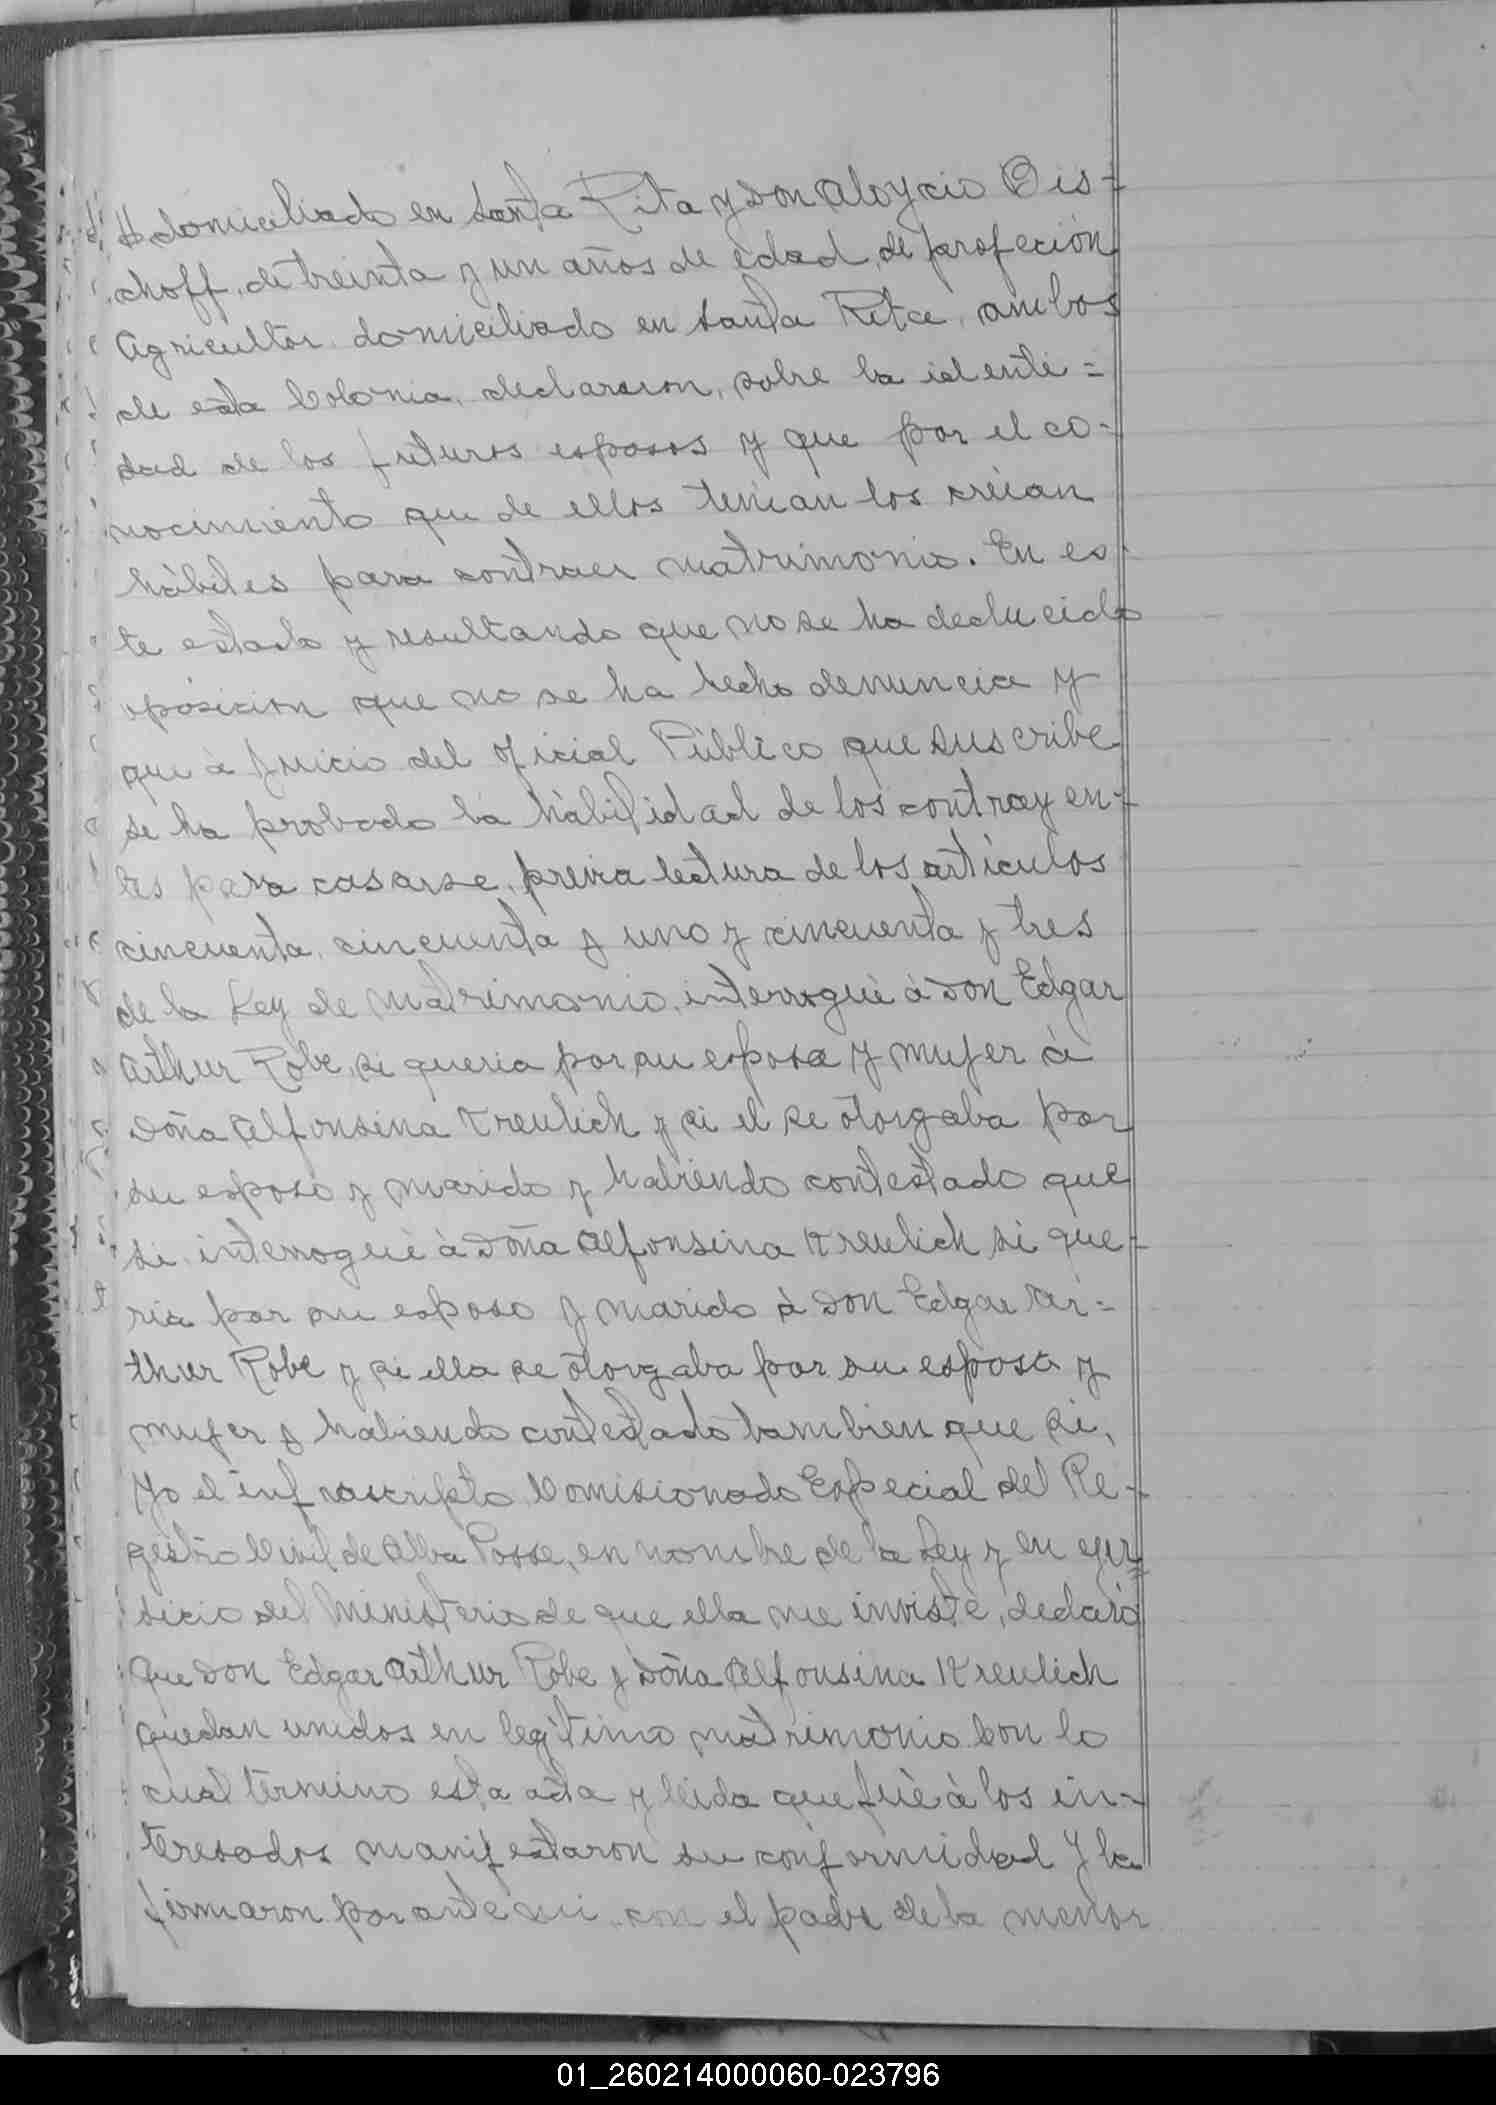 domiciliado en Santa Rita y Don Aloycio Bis-
choff, de treinta y un años de edad, de profeción
Agricultor domiciliado en Santa Rita, ambos
de esta Colonia, declararon, sobre la identi=
dad de los futuros esposos y que por el co-
nocimiento que de ellos tenian los creian
hábiles para contraer matrimonio. En es-
te estado y resultando que no se ha deducido
oposicion que no se ha hecho denuncia y
que à juicio del oficial Pùblico que suscribe
se ha probado la hàbilidad de los contrayen-
tes para casarse, previa lectura de los artìculos
cincuenta, cincuenta y uno y cincuenta y tres
de la Ley de Matrimonio, interroguè à Don Edgar
Arthur Robe, si queria por su esposa y mujer à
Doña Alfonsina Kreulich y si el se otorgaba por
su esposo y marido y habiendo contestado que
si, interroguè à Doña Alfonsina Kreulich si que-
ria por su esposo y marido à Don Edgar Ar=
thur Robe y si ella se otorgaba por su esposa y
mujer y habiendo contestado tambien que si,
Yo el infrascripto Comisionado Especial del Re-
gistro Civil de Alba Posse, en nombre de la Ley y en ejer=
sicio del Ministerio de que ella me inviste, declaro
que Don Edgar Arthur Robe y Doña Alfonsina Kreulich
quedan unidos en legìtimo matrimonio. Con lo
cual tèrmino esta acta y leida que fuè à los in-
teresados manifestaron su conformidad y la
firmaron por ante mi, con el padre de la menor
01_260214000060-023796